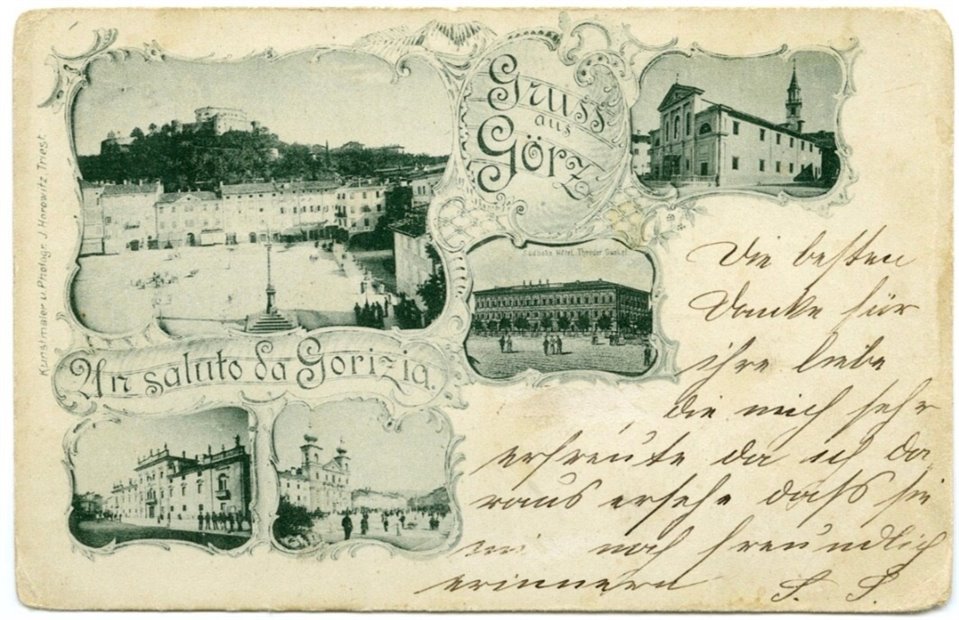 Gruss
aus
Görz
Südbahn Hôtel, Theodor Gunkel
Un saluto da Gorizia.
Kunstmaler u. Photogr. J. Horowitz, Triest.
Die besten
Danke für
ihre liebe
die mich sehr
erfreute da ich da
raus ersehe dass sie
noch freundlich
erinnern S. S.